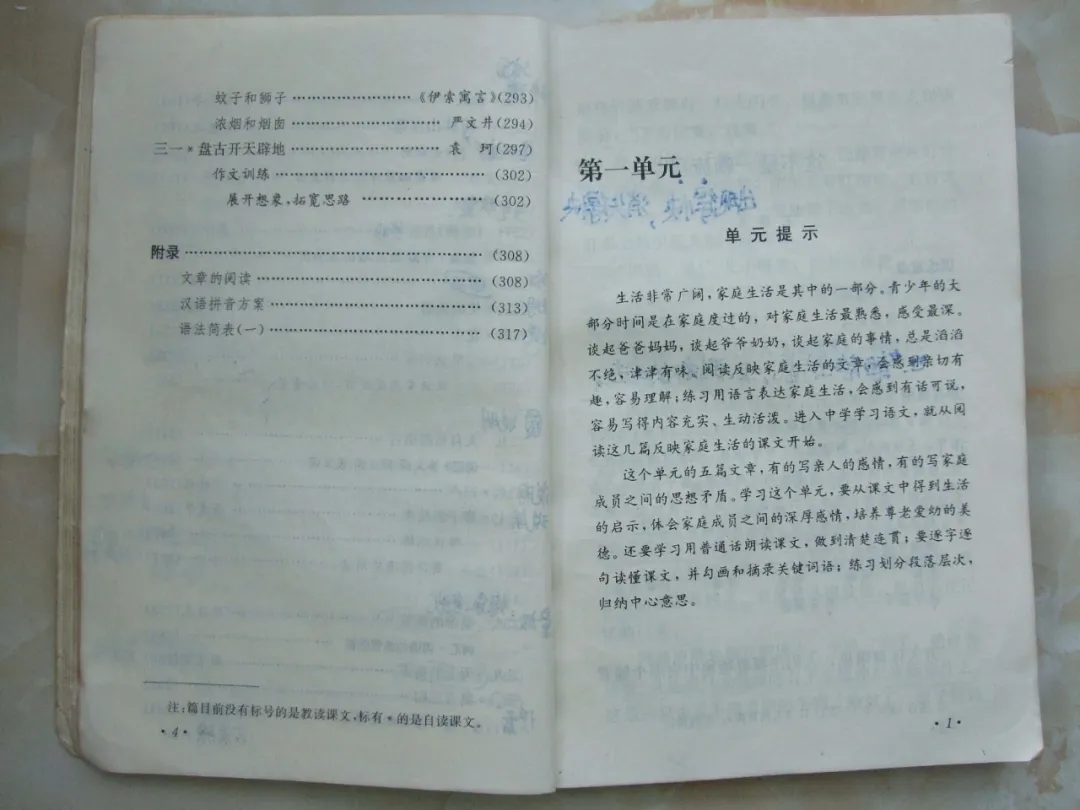 蚊子和狮子……………………《伊索寓言》(293)
浓烟和烟囱……………………严文井(294)
三一*盘古开天辟地……………………袁 珂(297)
作文训练……………………(302)
展开想象,拓宽思路……………………(302)
附录……………………(308)
文章的阅读……………………(308)
汉语拼音方案……………………(313)
语法简表(一)……………………(317)
注:篇目前没有标号的是教读课文,标有*的是自读课文。
·4·
第一单元
单元提示
生活非常广阔,家庭生活是其中的一部分。青少年的大
部分时间是在家庭度过的,对家庭生活最熟悉,感受最深。
谈起爸爸妈妈,谈起爷爷奶奶,谈起家庭的事情,总是滔滔
不绝,津津有味。阅读反映家庭生活的文章,会感到亲切有
趣,容易理解;练习用语言表达家庭生活,会感到有话可说,
容易写得内容充实、生动活泼。进入中学学习语文,就从阅
读这几篇反映家庭生活的课文开始。
这个单元的五篇文章,有的写亲人的感情,有的写家庭
成员之间的思想矛盾。学习这个单元,要从课文中得到生活
的启示,体会家庭成员之间的深厚感情,培养尊老爱幼的美
德。还要学习用普通话朗读课文,做到清楚连贯;要逐字逐
句读懂课文,并勾画和摘录关键词语;练习划分段落层次,
归纳中心意思。
·1·